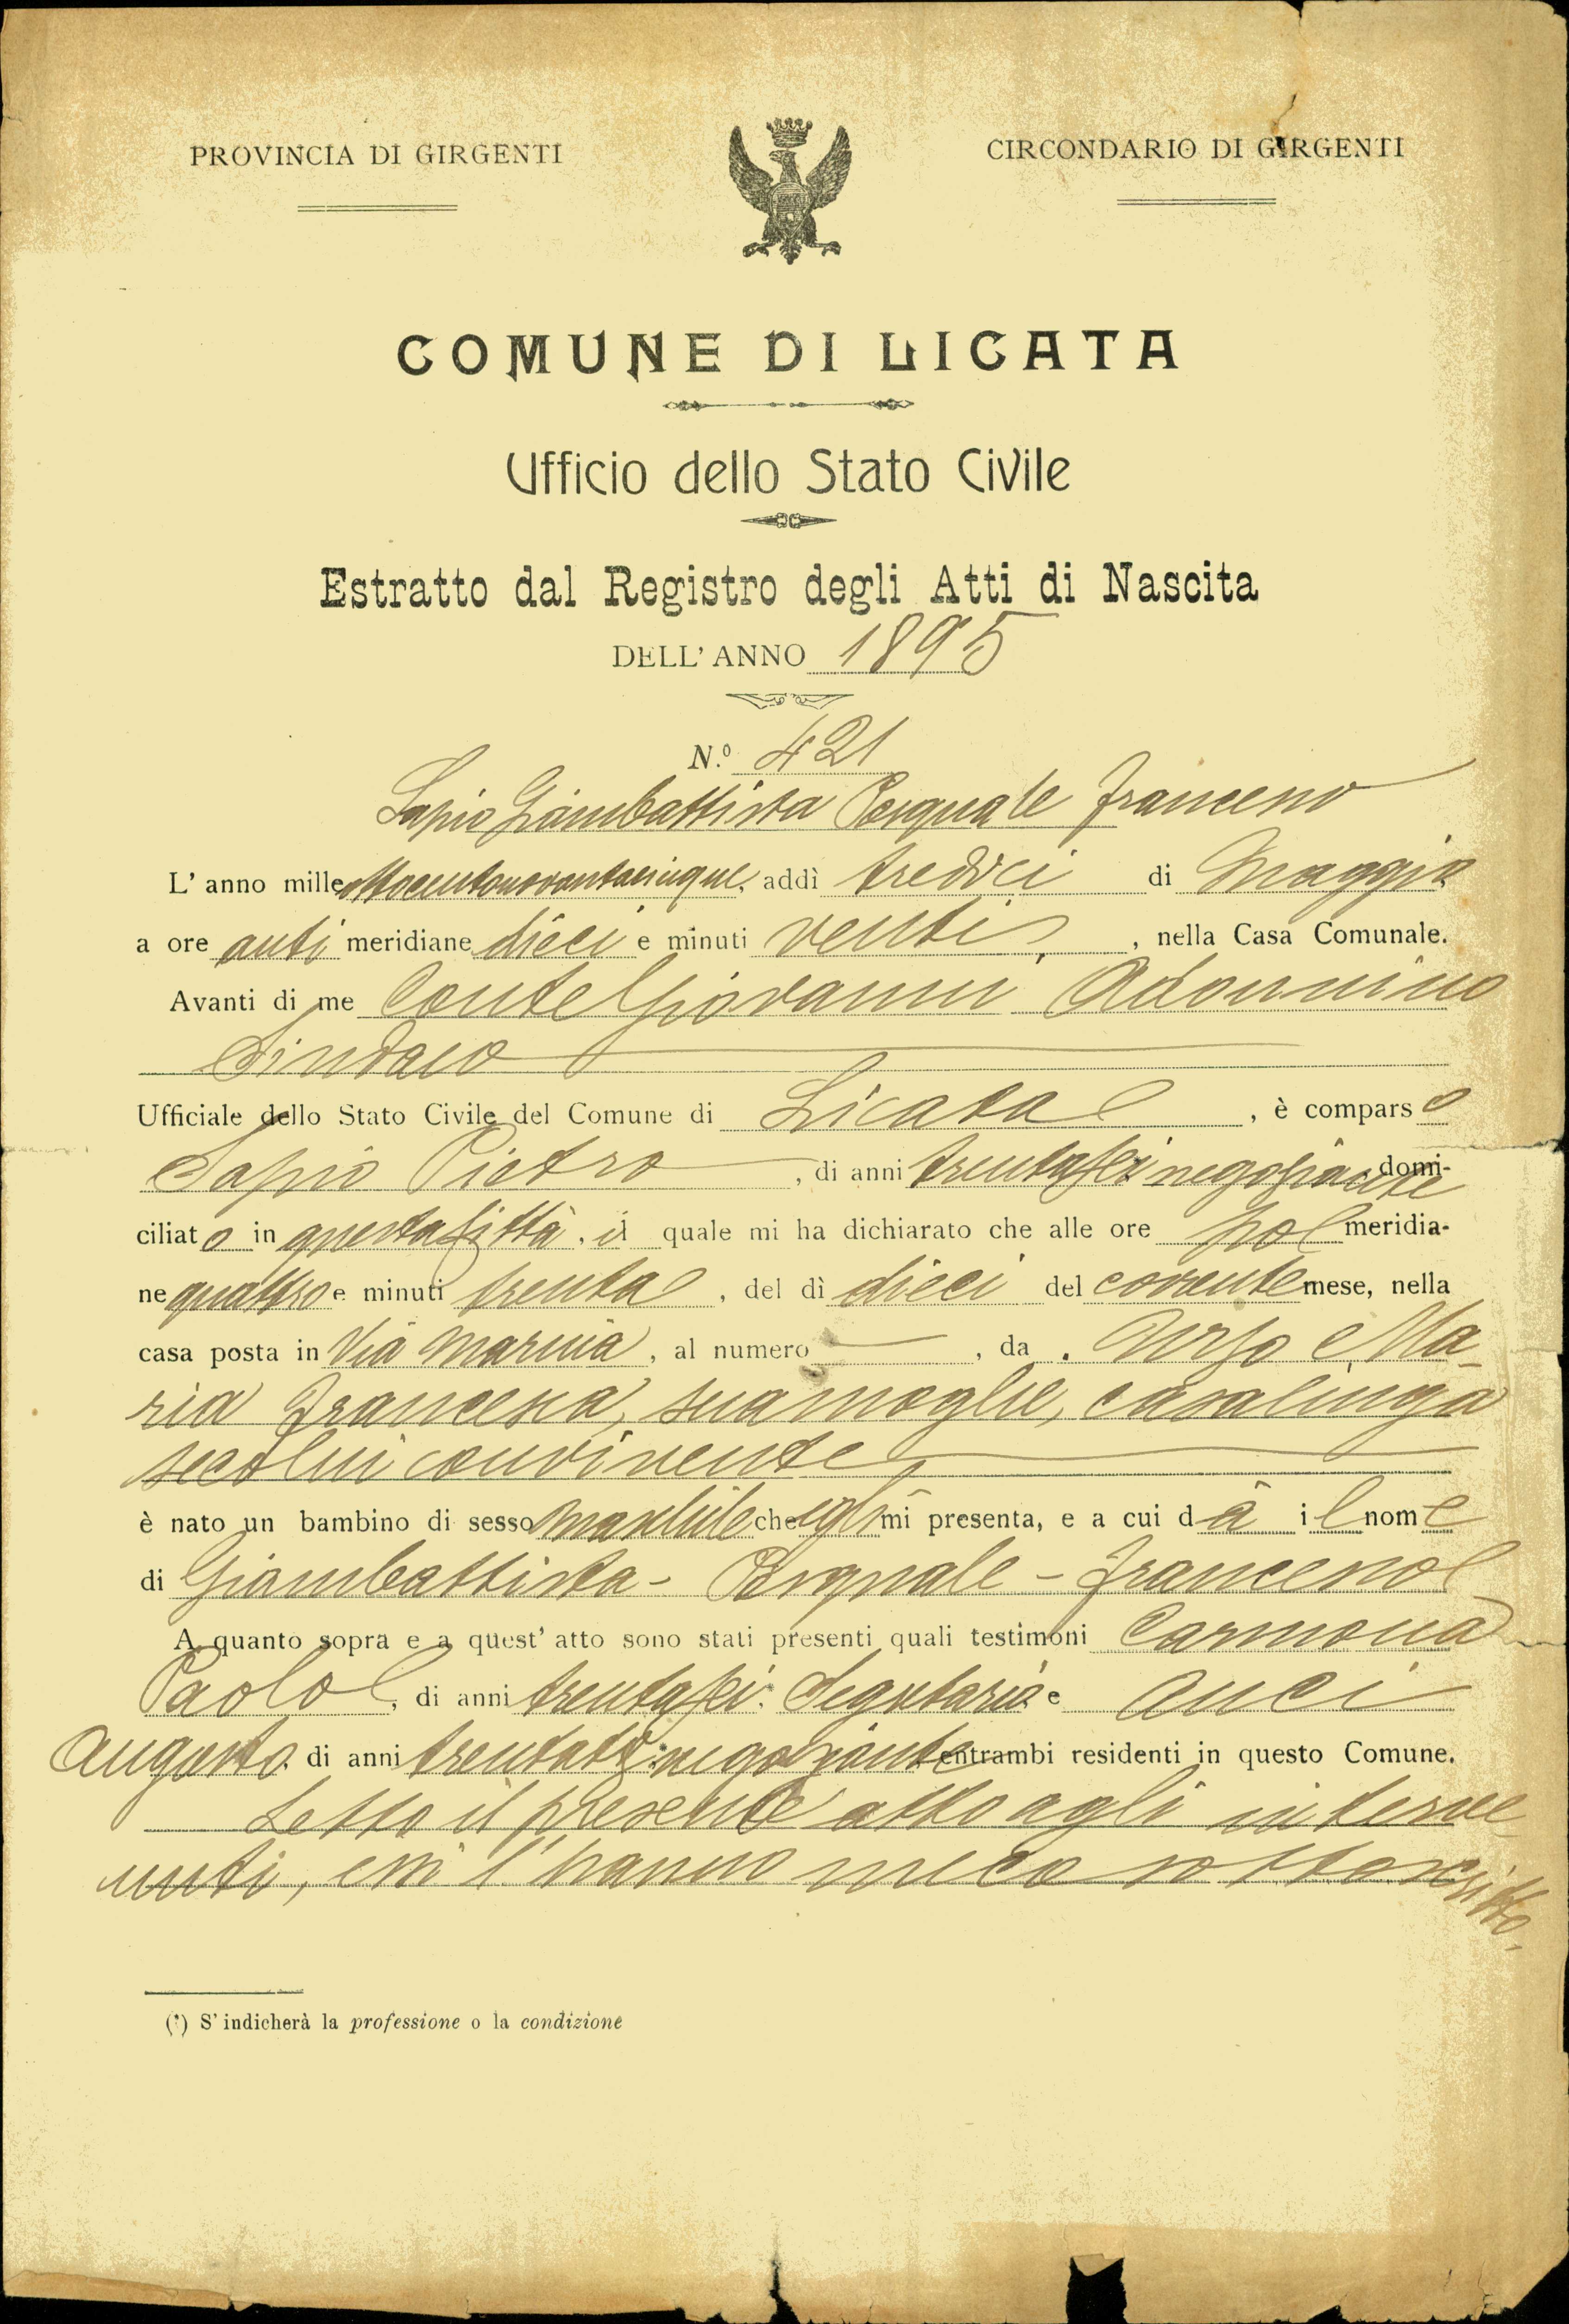 PROVINCIA DI GIRGENTI
CIRCONDARIO DI GIRGENTI
COMUNE DI LICATA
Ufficio dello Stato Civile
Estratto dal Registro degli Atti di Nascita
DELL' ANNO 1895
N.º 421
Sapio Giambattista Pasquale Francesco
L' anno mille ottocentonovantacinque, addì tredici di Maggio
a ore anti meridiane dieci e minuti venti, nella Casa Comunale.
Avanti di me Conte Giovanni Adonnino
Sindaco
Ufficiale dello Stato Civile del Comune di Licata, è comparso
Sapio Pietro, di anni trentasei negoziante domi-
ciliato in questa Città, il quale mi ha dichiarato che alle ore pom meridia-
ne quattro e minuti trenta, del dì dieci del corrente mese, nella
casa posta in Via Marina, al numero —, da Urso Ma-
ria Francesca, sua moglie, casalinga
seco lui convivente
è nato un bambino di sesso maschile che egli mi presenta, e a cui dà il nome
di Giambattista - Pasquale - Francesco
A quanto sopra e a quest' atto sono stati presenti quali testimoni Carmona
Paolo, di anni trentasei, Segretario e Auci
Augusto di anni negoziante entrambi residenti in questo Comune.
Letto il presente atto agli interve
nuti, essi l'hanno meco sottoscritto.
(*) S' indicherà la professione o la condizione